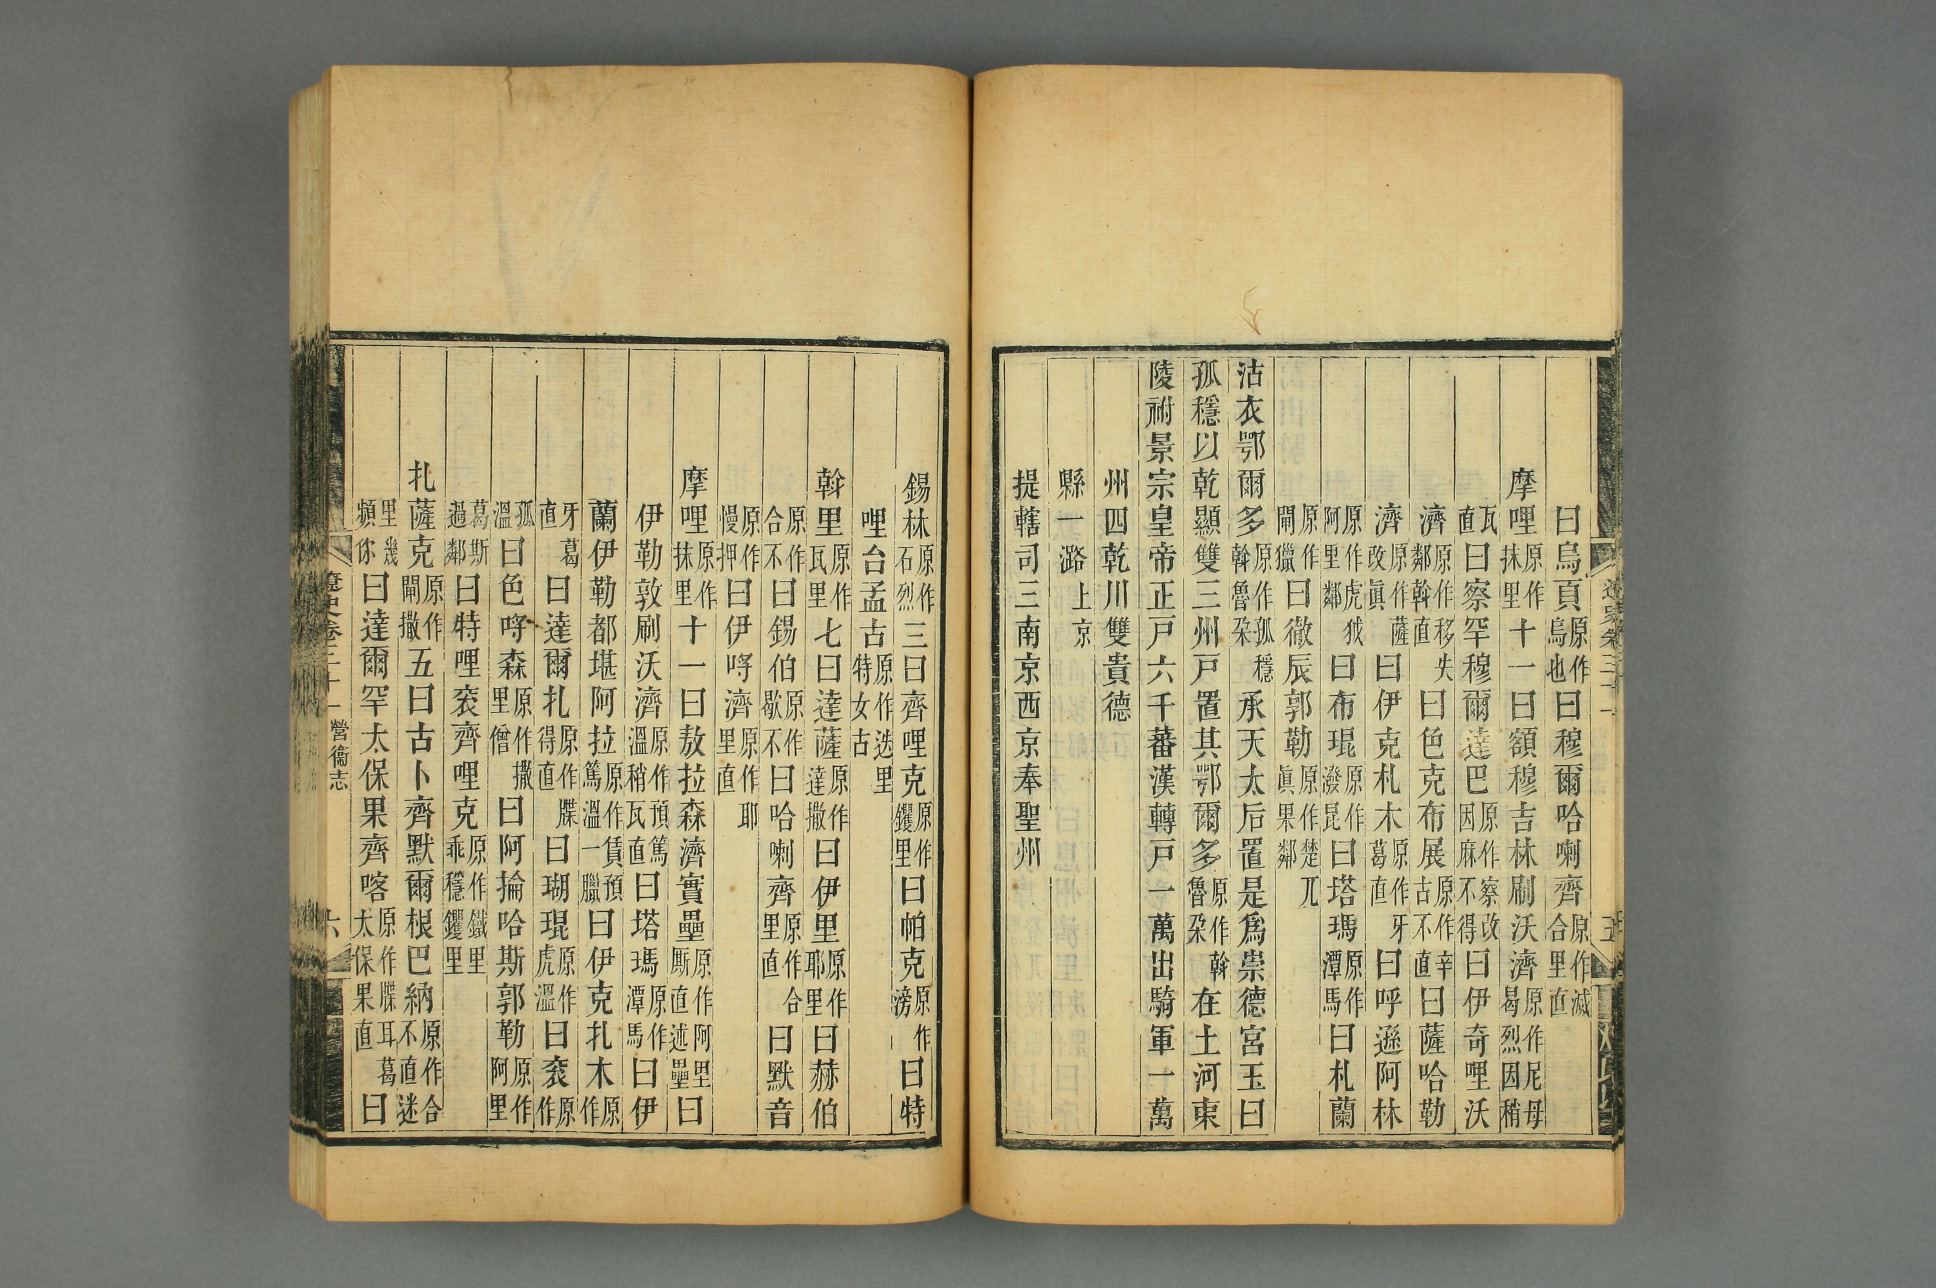 曰烏頁原作烏也曰穆爾哈喇齊原作滅合里直
摩哩原作抹里十一曰額穆吉林刷沃濟原作尼母曷烈因稍
瓦直曰察罕穆爾達巴原作察改因麻不得曰伊奇哩沃
濟原作移失鄰斡直曰色克布展原作辛古不直曰薩哈勒
濟原作薩改眞曰伊克札木原作牙葛直曰呼遜阿林
原作虎狘阿里鄰曰布琨原作潑昆曰塔瑪原作潭馬曰札蘭
原作閘獵曰徹辰郭勒原作楚兀眞果鄰
沽衣鄂爾多原作孤穩斡魯朶承天太后置是爲崇德宮玉曰
孤穩以乾顯雙三州戸置其鄂爾多原作斡魯朶在土河東
陵祔景宗皇帝正戸六千蕃漢轉戸一萬出騎軍一萬
州四乾川雙貴德
縣一潞上京
提轄司三南京西京奉聖州
遼史卷三十一
五
錫林原作石烈三曰齊哩克原作钁里曰帕克原作滂曰特
哩台孟古原作迭里特女古
斡里原作瓦里七曰達薩原作達撒曰伊里原作耶里曰赫伯
原作合不曰錫伯原作歇不曰哈喇齊原作合里直曰默音
原作慢押曰伊哷濟原作耶里直
摩哩原作抹里十一曰敖拉森濟實壘原作阿里厮直述壘曰
伊勒敦刷沃濟原作預篤溫稍瓦直曰塔瑪原作潭馬曰伊
蘭伊勒都堪阿拉原作賃預篤溫一臘曰伊克扎木原作
牙葛直曰達爾扎原作牒得直曰瑚琨原作虎溫曰袞原作
孤溫曰色哷森原作撒里僧曰阿掄哈斯郭勒原作阿里
葛斯過鄰曰特哩袞齊哩克原作鐵里乖穩钁里
扎薩克原作閘撒五曰古卜齊默爾根巴納原作合不直迷
里幾頻你曰達爾罕太保果齊喀原作牒耳葛太保果直曰
遼史卷三十一
營衞志
六